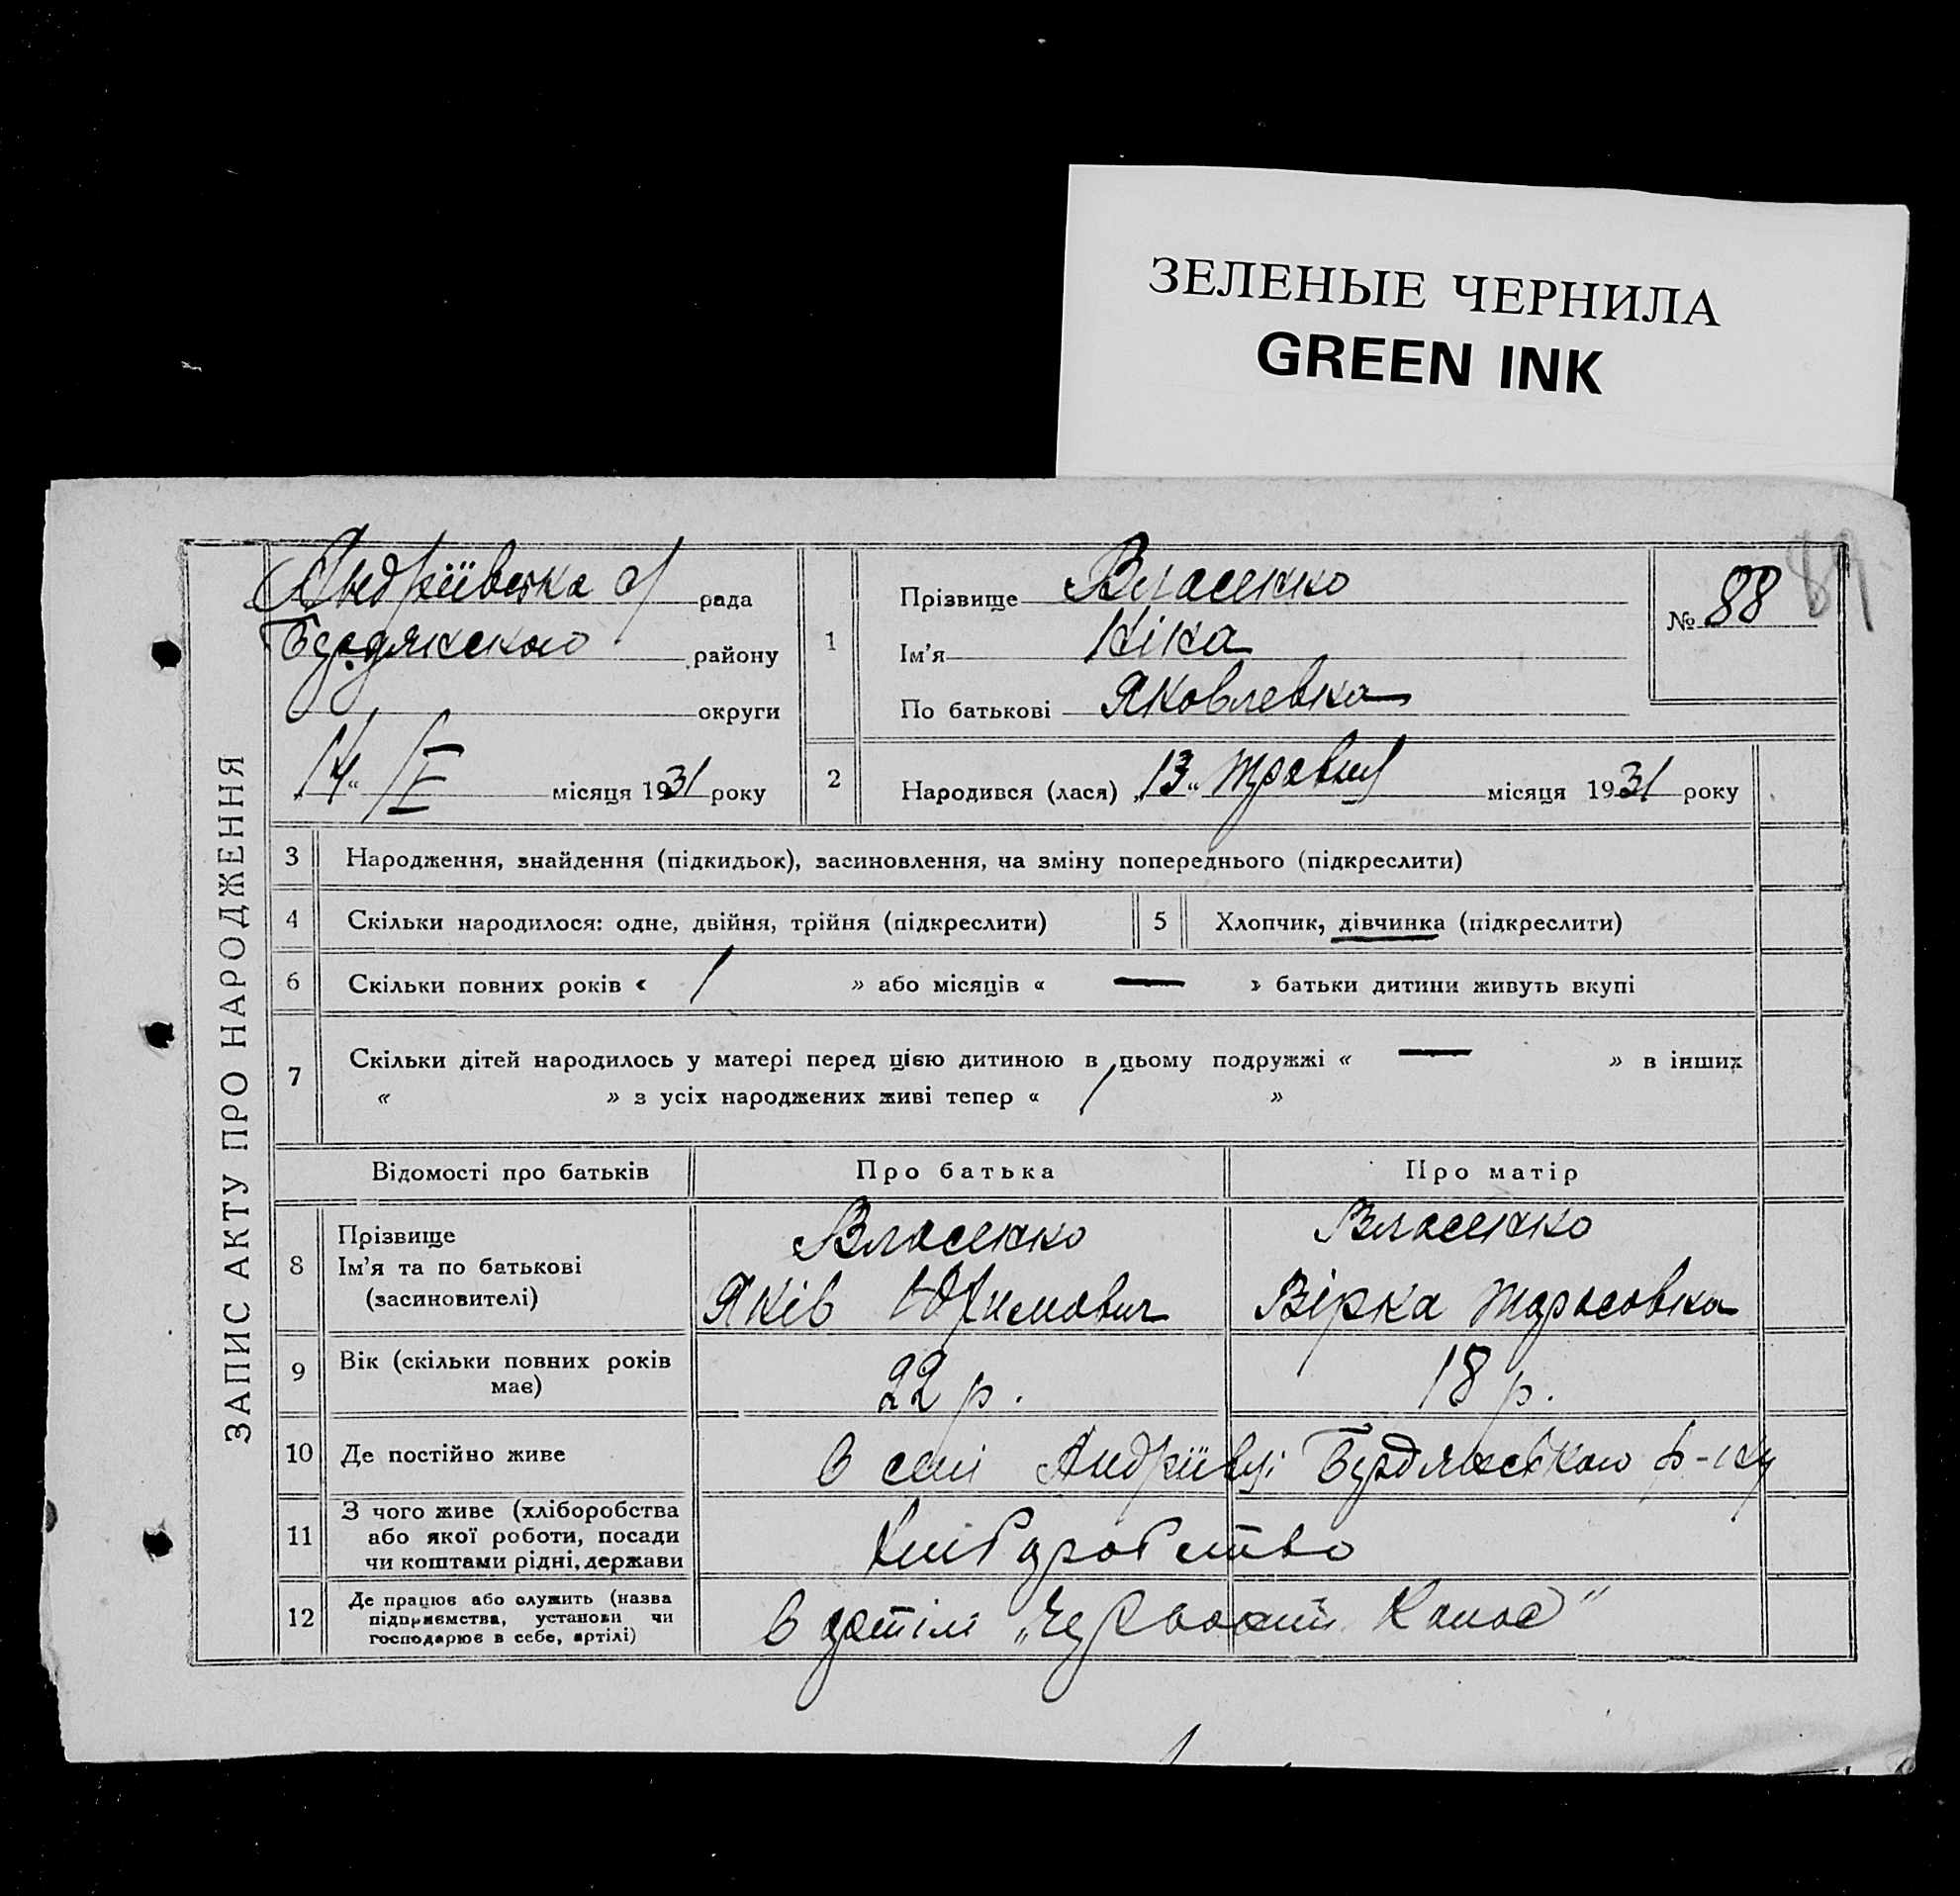 ЗЕЛЕНЫЕ ЧЕРНИЛА
GREEN INK
ЗАПИС АКТУ ПРО НАРОДЖЕННЯ
Андріївська с/ рада
Бердянского району
округи
„14“ IV місяця 1931 року
1 Прізвище Власенко
Ім'я Ніна
По батькові Яковлевна
№ 88
89
2 Народився (лася) „13“ травня місяця 1931 року
3 Народження, знайдення (підкидьок), засиновлення, на зміну попереднього (підкреслити)
4 Скільки народилося: одне, двійня, трійня (підкреслити) 5 Хлопчик, дівчинка (підкреслити)
6 Скільки повних років « 1 » або місяців « — » батьки дитини живуть вкупі
7 Скільки дітей народилось у матері перед цією дитиною в цьому подружжі « — » в інших
« » з усіх народжених живі тепер « 1 »
Відомості про батьків Про батька Про матір
8 Прізвище Власенко Власенко
Ім'я та по батькові Яків Юхимович Вірка Тарасовна
(засиновителі)
9 Вік (скільки повних років має) 22 р. 18 р.
10 Де постійно живе в селі Андріївці Бердянського р-ну
11 З чого живе (хліборобства
або якої роботи, посади
чи коштами рідні, держави Хліборобство
12 Де працює або служить (назва
підприємства, установи чи
господарює в себе, артілі) в артілі „Червоний Колос“